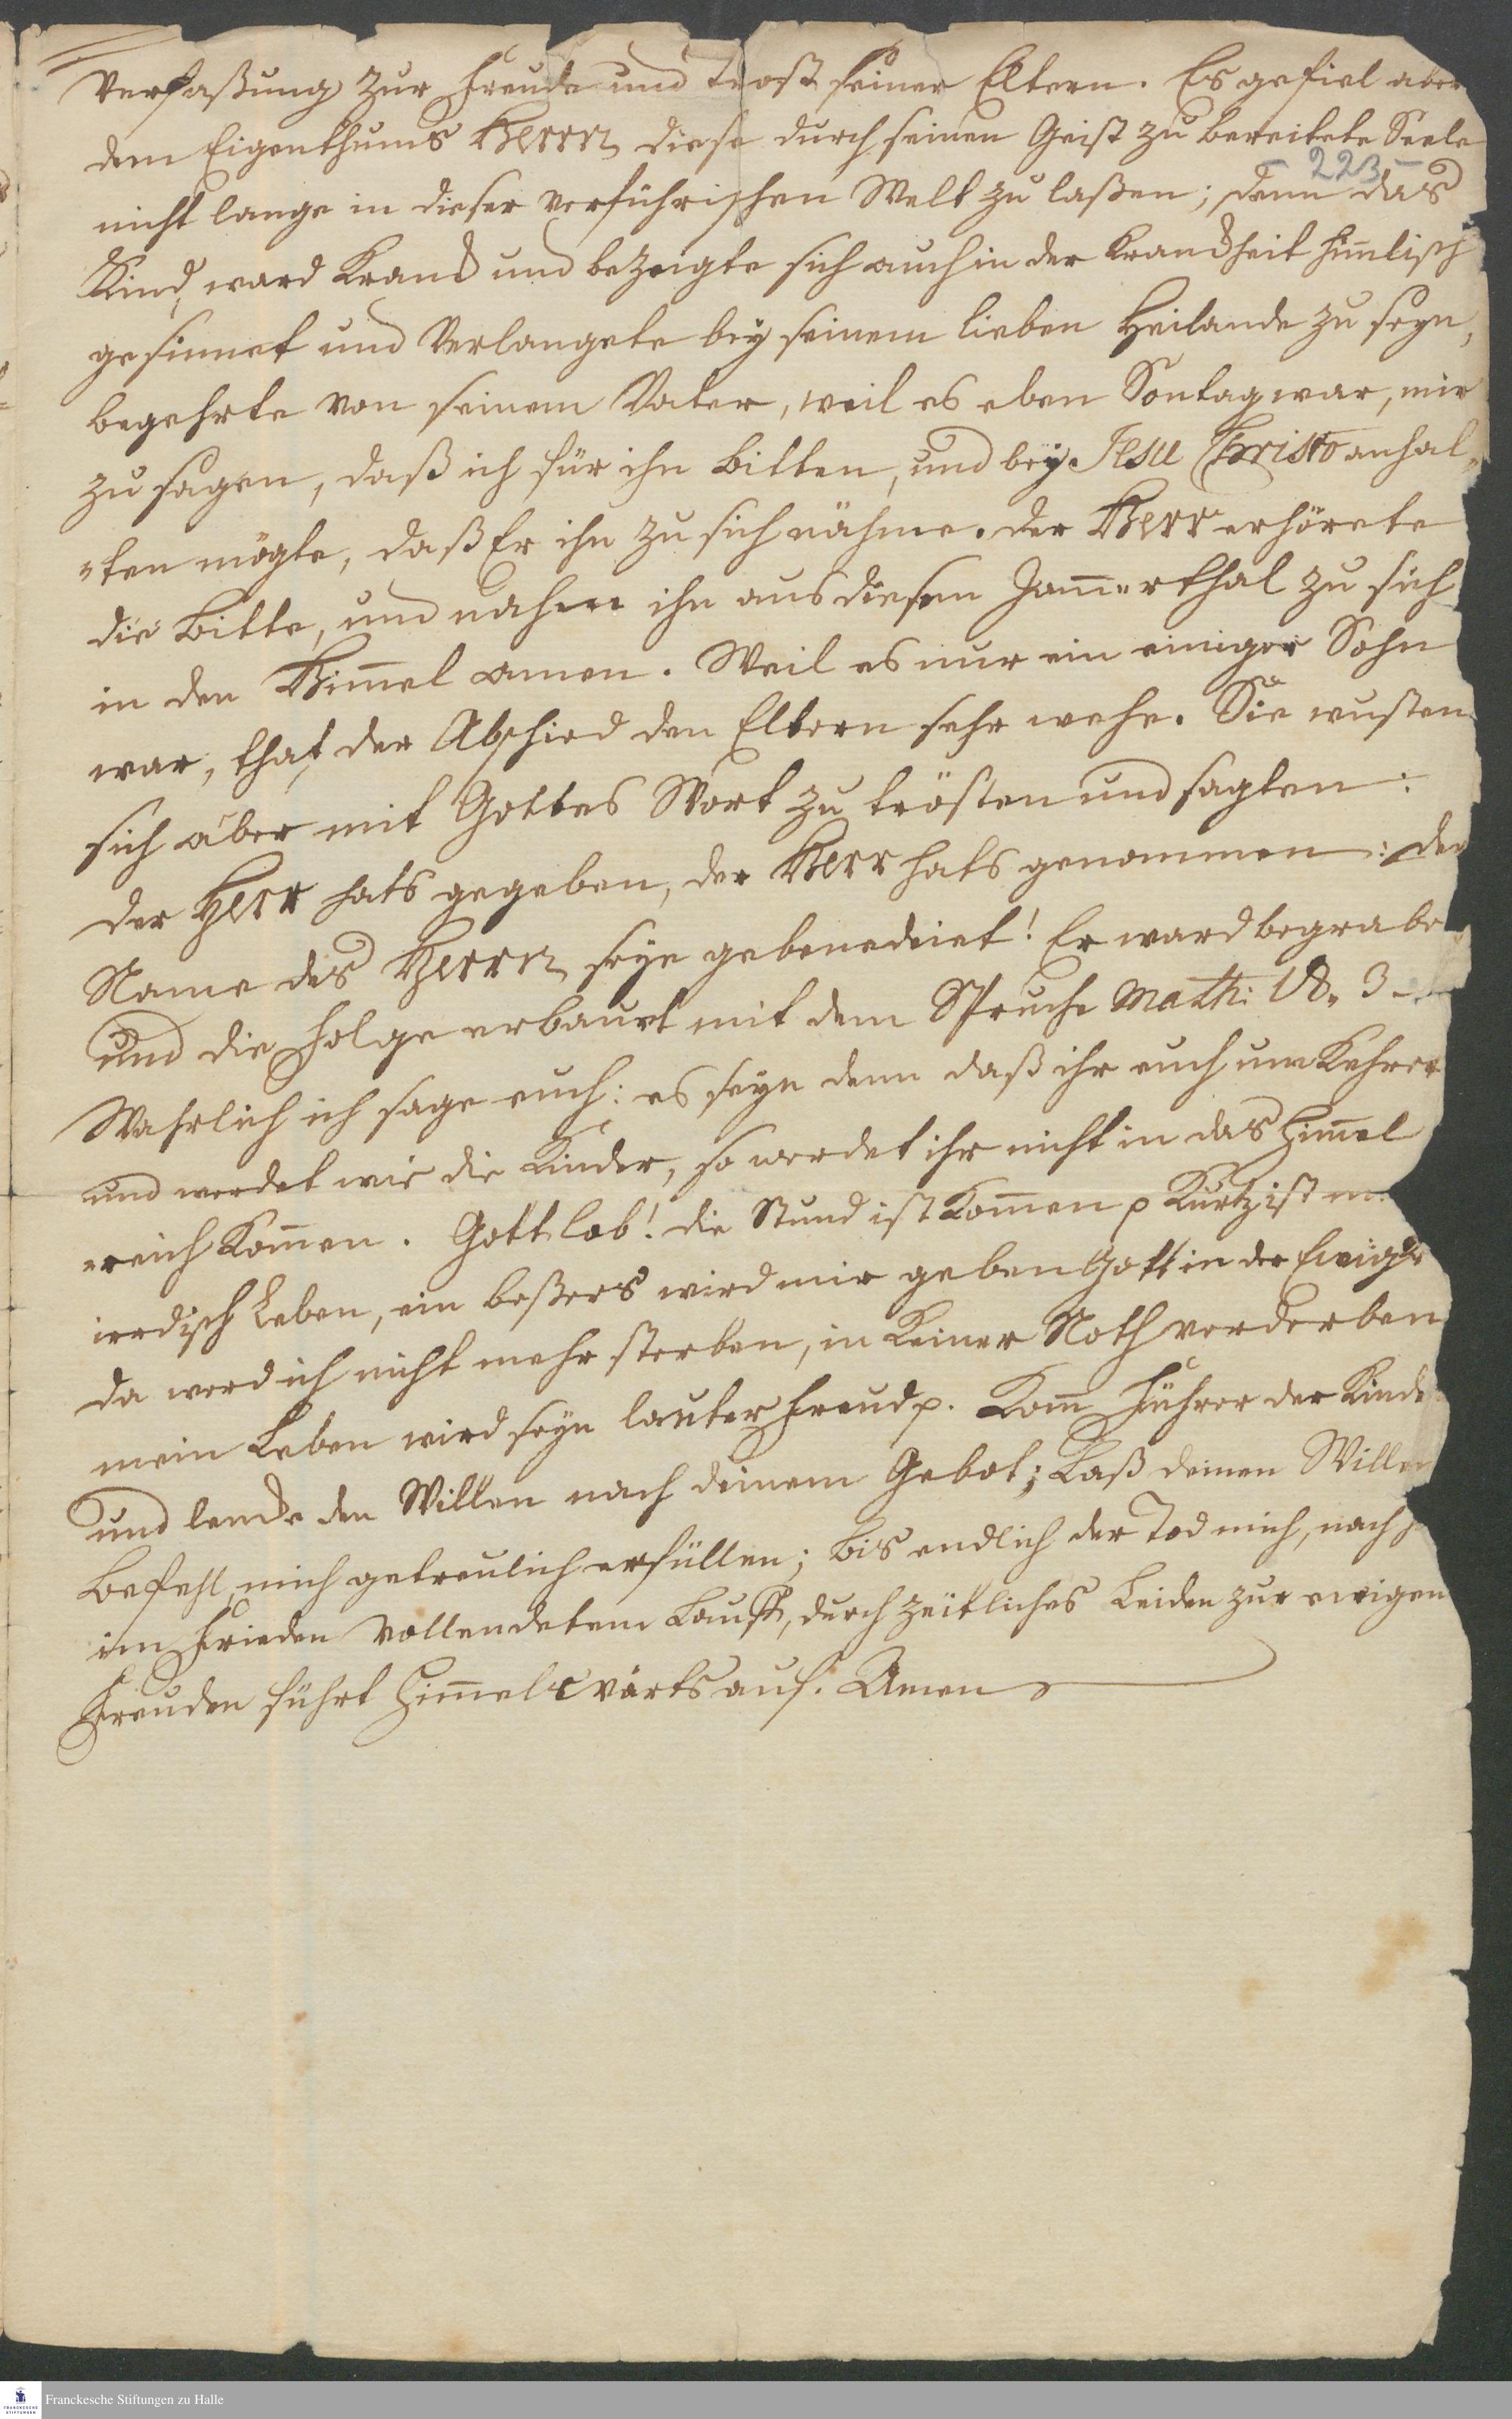 Verfaßung zur Freude und Trost seiner Eltern. Es gefiel aber
dem Eigenthums Herrn diese durch seinen Geist zu bereitete Seele
- 223 -
nicht lange in dieser verführischen Welt zu laßen; denn das
Kind ward Kranck und bezeigte sich auch in der Kranckheit him̅lisch
gesinnet und Verlangete bey seinem lieben Heilande zu seyn,
begehrte von seinem Vater, weil es eben Sontag war, mir
zu sagen, daß ich für ihn bitten, und bey Jesu Christo anhal„
„ten mögte, daß Er ihn zu sich nähme. der Herr erhörete
die Bitte, und nahm ihn aus diesem Jam̅erthal zu sich
in den Him̅el amen. Weil es nur ein einiger Sohn
war, that der Abschied den Eltern sehr wehe. Sie wusten
sich aber mit Gottes Wort zu trösten und sagten:
der Herr hats gegeben, der Herr hats genommen: der
Name des Herrn seye gebenedeiet! Er ward begrabe
und die Folge erbauet mit dem Spruche Math: 18, 3 -
Wahrlich ich sage euch: es seye denn daß ihr euch um Kehret
und werdet wie die Kinder, so werdet ihr nicht in das Him̅el
„reich Kom̅en. Gott lob! die Stund ist Kom̅en p Kurtz ist m
irrdisch Leben, ein beßers wird mir geben Gott in der Ewigk
da werd ich nicht mehr sterben, in Keiner Noth verderben
mein Leben wird seyn lauter Freud p. Kom̅ Führer der Kinde
und lencke den Willen nach deinem Gebot; Laß deinen Willen
Befehl mich getreulich erfüllen; bis endlich der Tod mich, nach
im Frieden Vollendetem Lauff, durch zeitliches Leiden zur ewigen
Freuden führt Him̅elwärts auf. Amen
Franckesche Stiftungen zu Halle